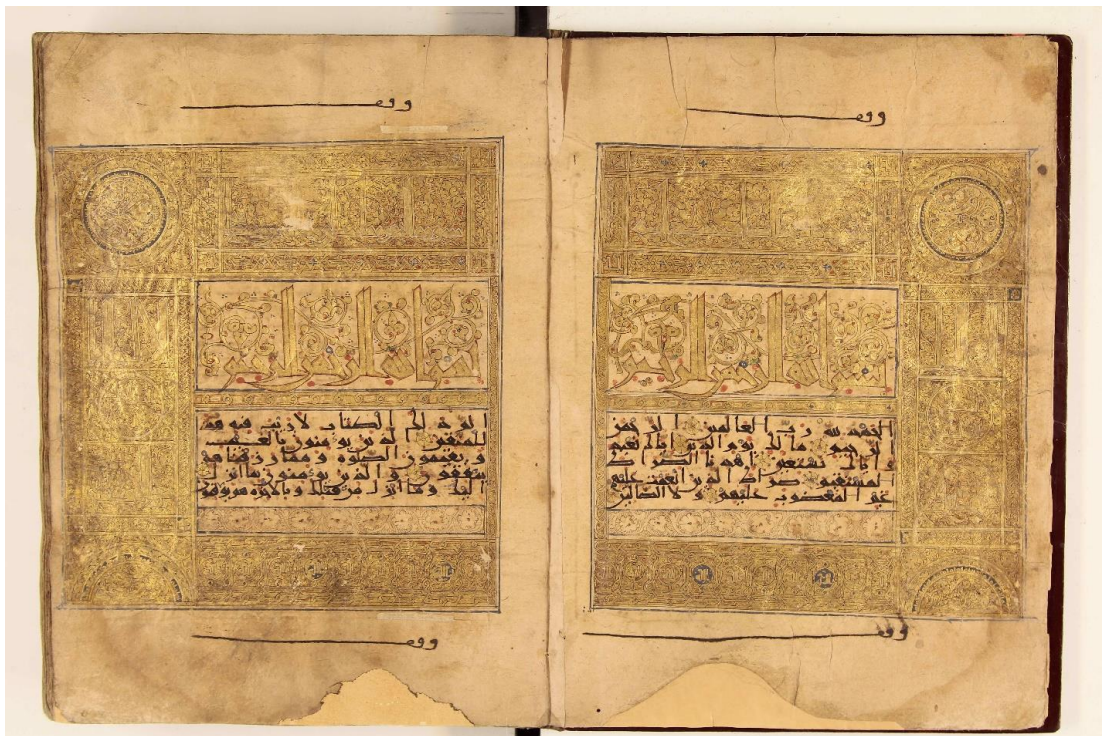 وقف
بسم الله الرحمن الرحيم
الحمد لله رب العالمين الرحمن
الرحيم ملك يوم الدين اياك نعبد
و اياك نستعين اهدنا الصراط
المستقيم صراط الذين انعمت عليهم
غير المغضوب عليهم ولا الضالين
وقف
وقف
بسم الله الرحمن الرحيم
الم ذلك الكتاب لا ريب فيه هدى
للمتقين الذين يؤمنون بالغيب
و يقيمون الصلوة و مما رزقناهم
ينفقون و الذين يؤمنون بما انزل
اليك وما انزل من قبلك وبالاخرة هم يوقنون
وقف